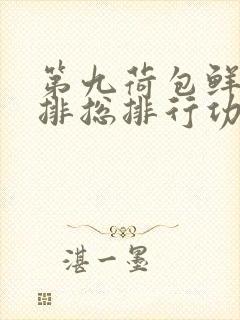 第九荷包鲜
排总排行功
湛一墨